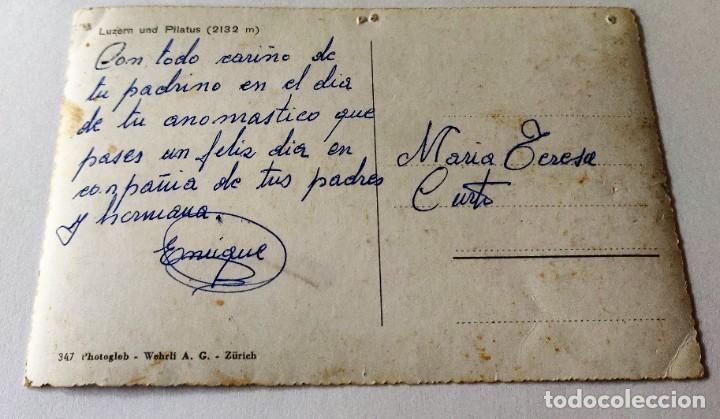 Luzern und Pilatus (2132 m)
Con todo cariño de
tu padrino en el dia
de tu anomastico que
pases un feliz dia en
conpañia de tus padres
y hermana.
Enrique
Maria Teresa
Curto
347 Photoglob - Wehrli A. G. - Zürich
todocoleccion